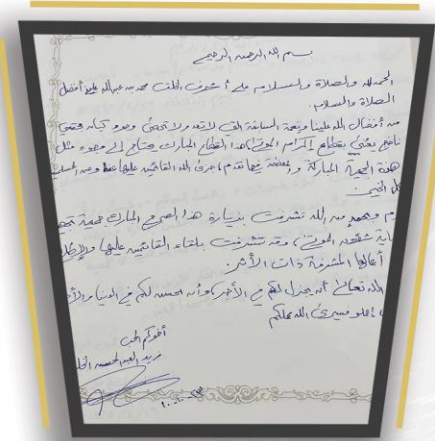 بسم الله الرحمن الرحيم
الحمد لله والصلاة والسلام على أشرف الخلق محمد بن عبدالله عليه أفضل
الصلاة والسلام.
من أفضال الله علينا ونعمه السابغة التي لا تعد ولا تحصى وجود كيان
ناجح يعنى بقطاع إكرام الموتى هذا القطاع المبارك يحتاج إلى وجود مثل
هذه الجمعية المباركة فيما تقدم جزى الله القائمين عليها
كل الخير.
الله تشرفت بزيارة هذا الصرح المبارك جمعية
شئون الموتى وقد تشرفت بلقاء القائمين عليها
أعمالها المشرفة ذات الأثر.
الله تعالى أن يجزل لهم في الأجر وأن يحسن لهم في الدنيا
فسيرى الله عملكم
أخوكم المحب
فريد